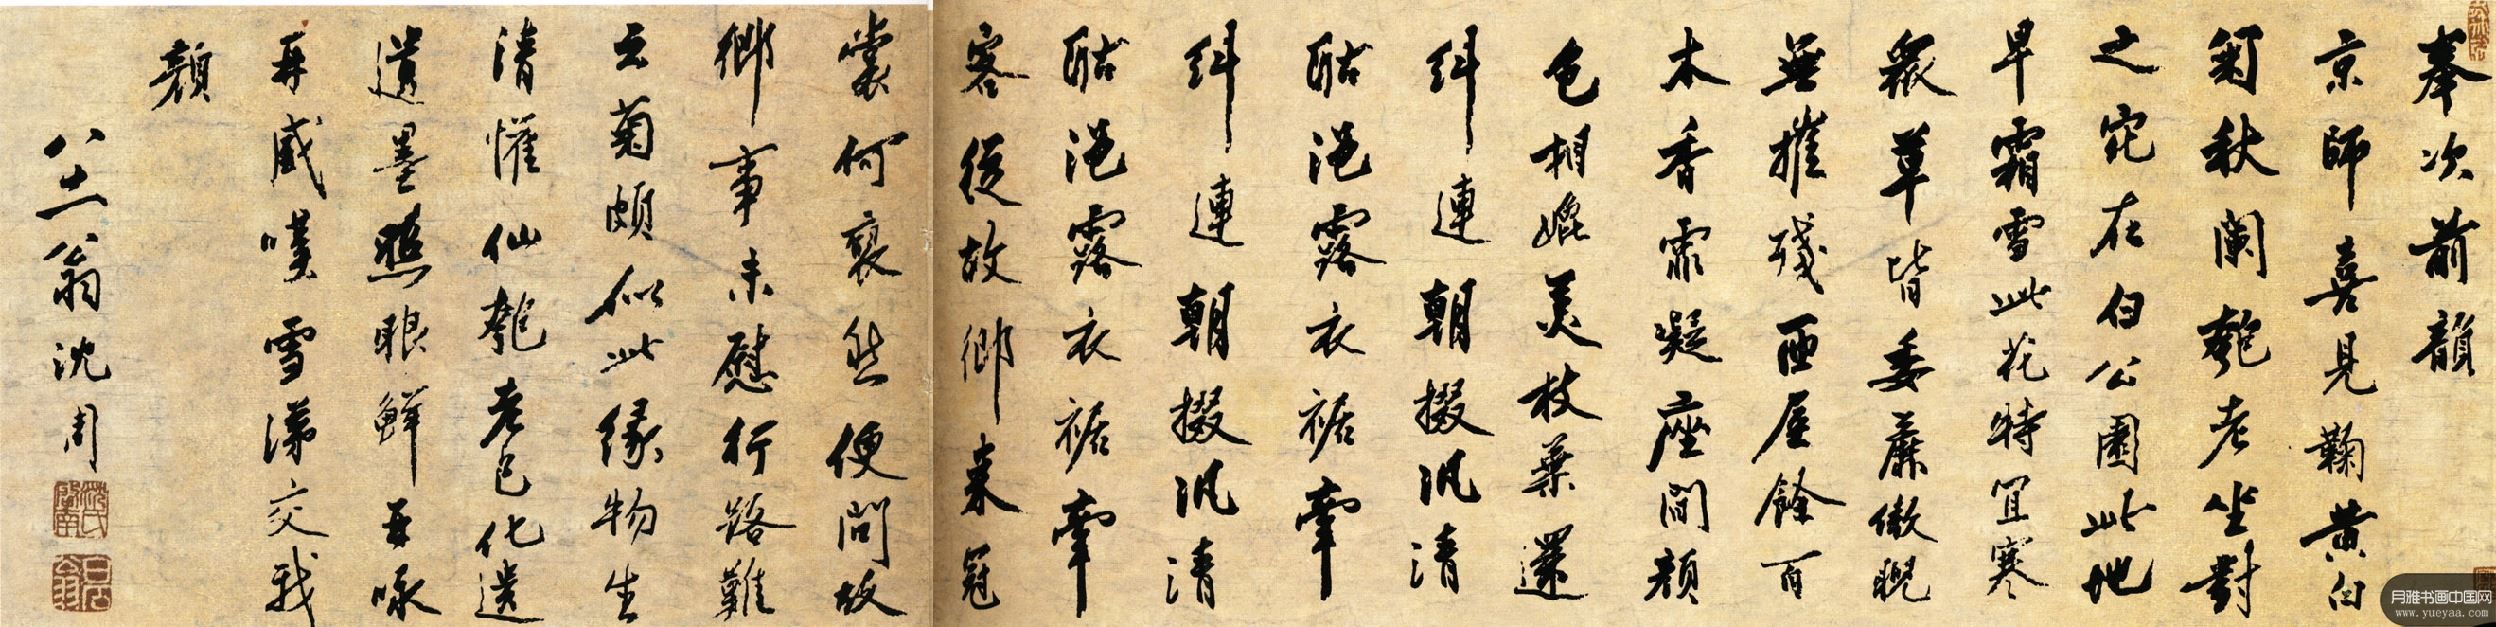 奉次前韻
京師喜見鞠黄白
匊秋闌匏老坐對
之究在白公園此地
早霜雪此花特宜寒
衆草皆委靡傲睨
無摧殘西屋餘百
木香霏凝座間顏
色相媲美枝葉還
糾連朝掇汎清
酤浥露衣裾牽
糾連朝掇汎清
酤浥露衣裾牽
客從故鄉来冠
裳何褎然便問故
鄉事未慰行路難
云菊頗似此緣物生
清懽仙匏老已化遺
遺墨照眼鮮吾咏
再感嘆雪涕交我
顏
八十一翁沈周
月雅书画中国网
www.yueyaa.com